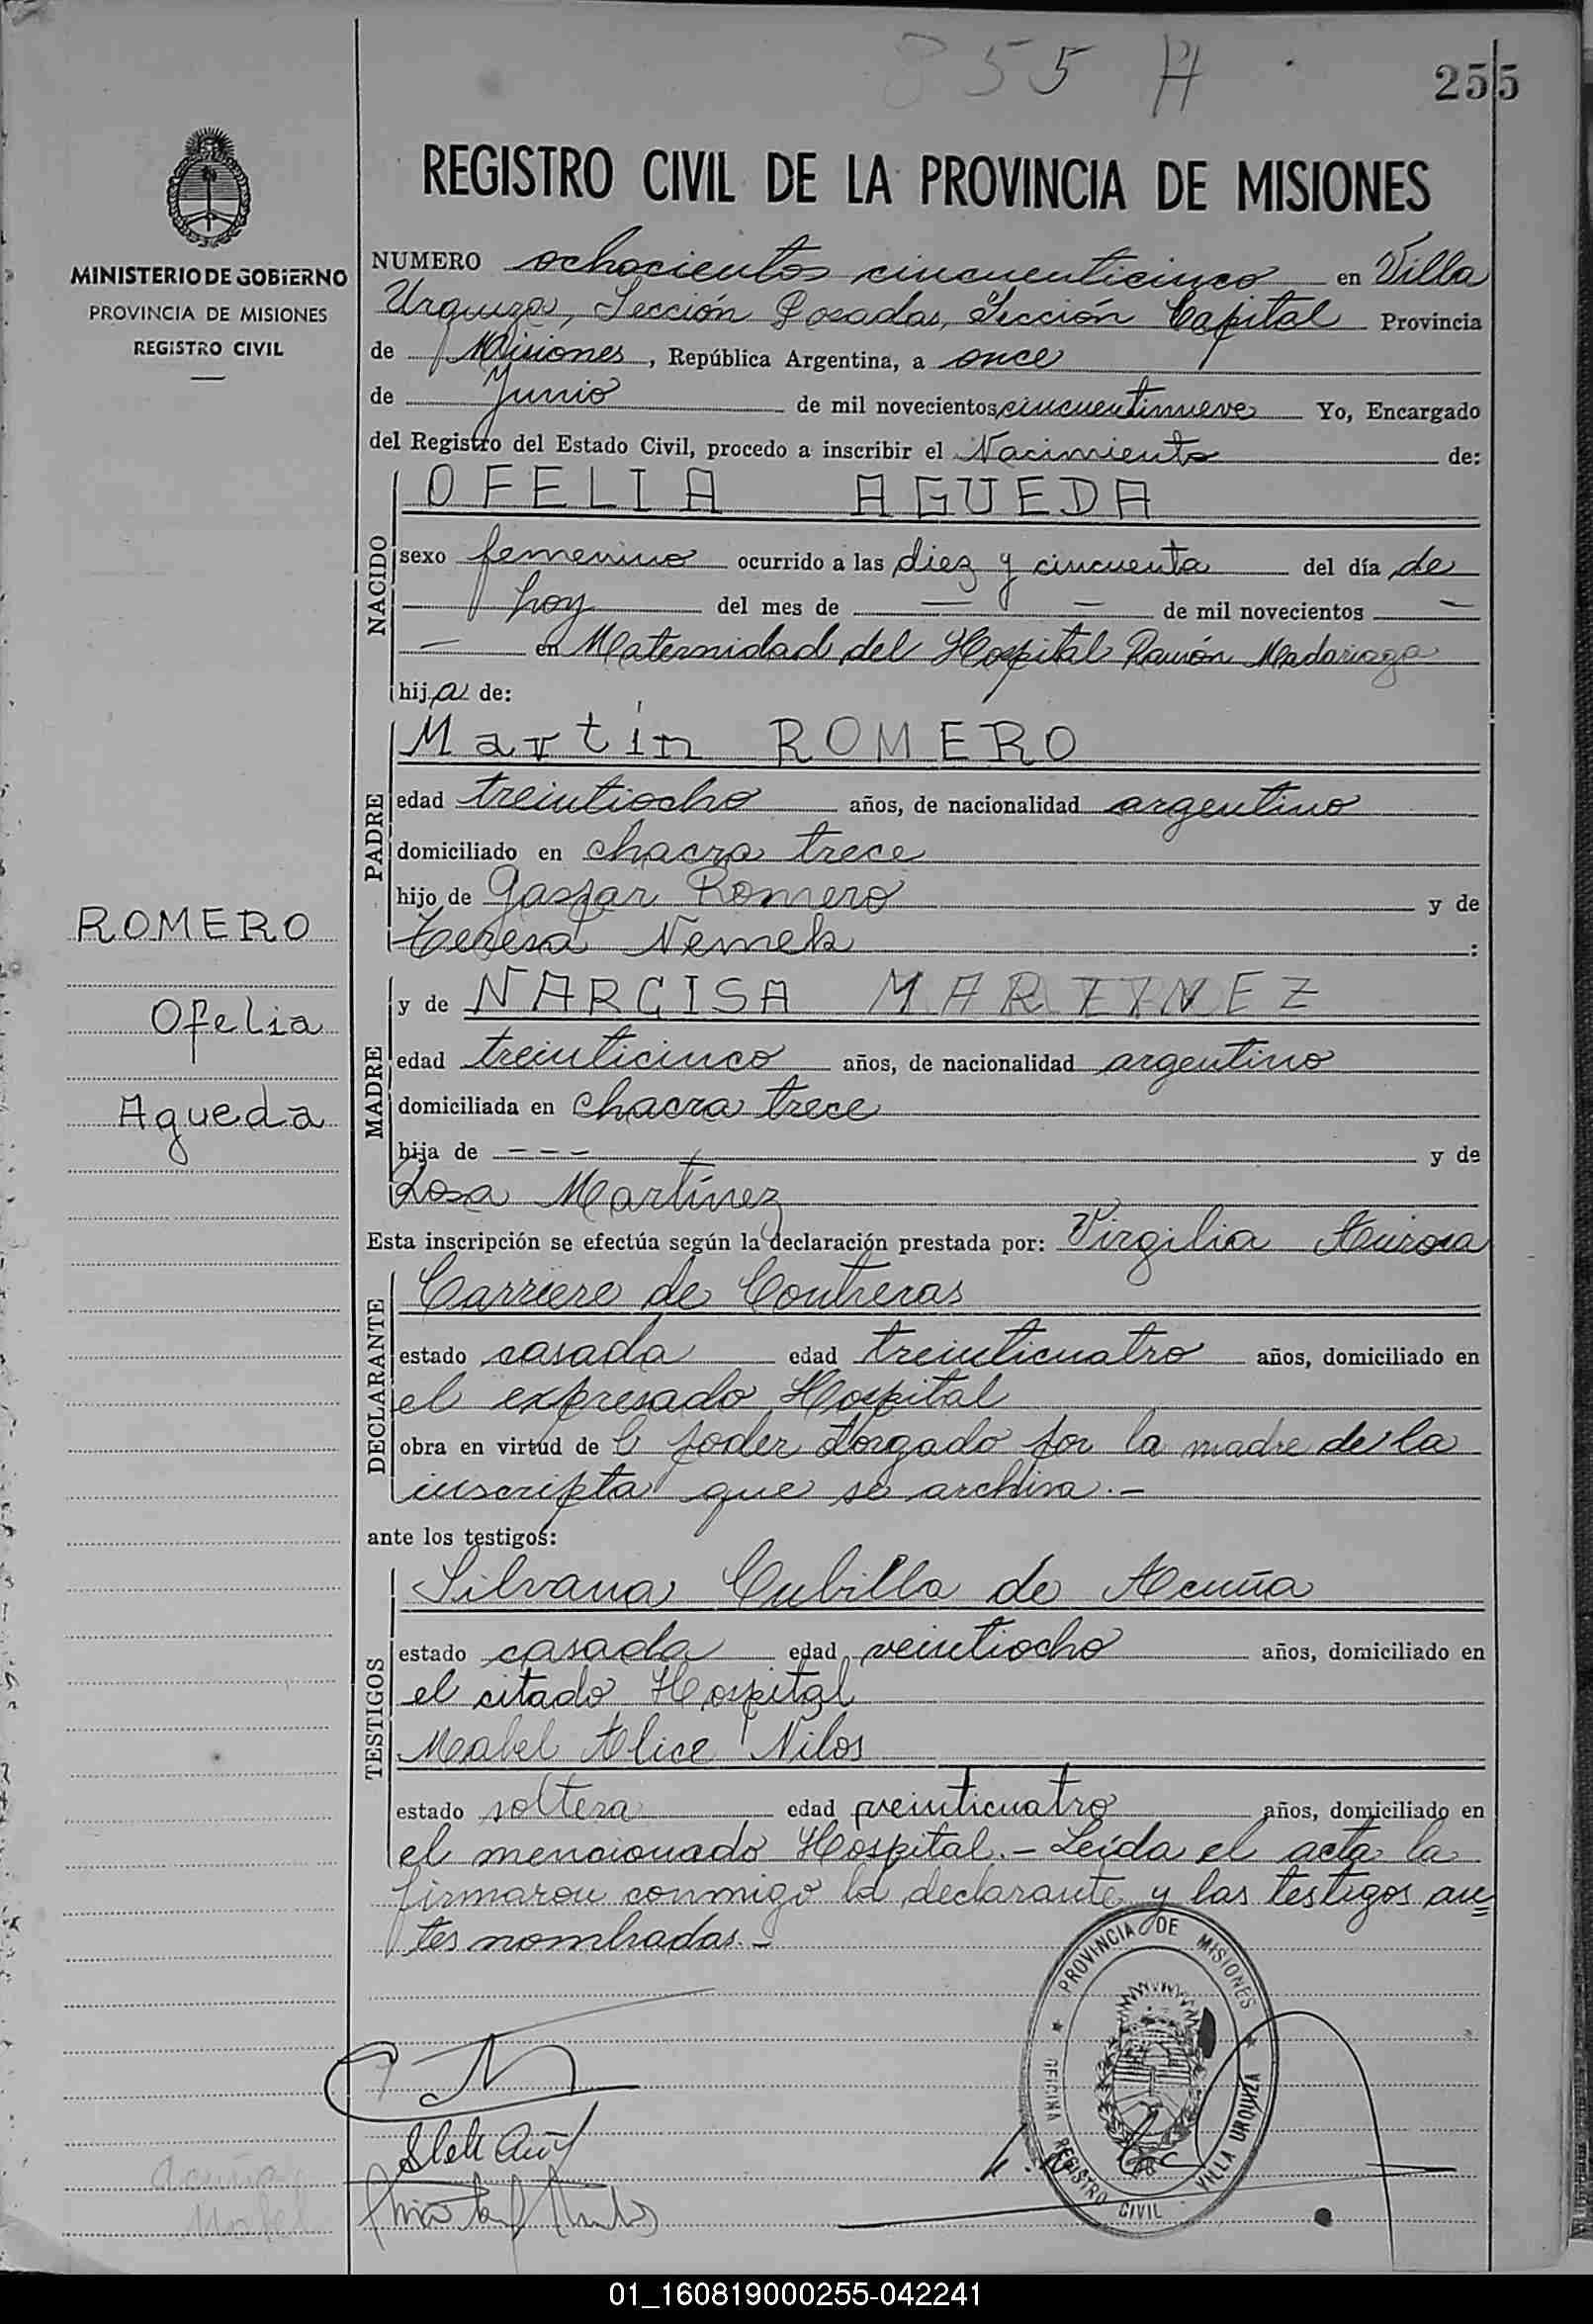 855 A
255
REGISTRO CIVIL DE LA PROVINCIA DE MISIONES
MINISTERIO DE GOBIERNO
PROVINCIA DE MISIONES
REGISTRO CIVIL
NUMERO ochocientos cincuenticinco en Villa
Urquiza, Sección Posadas, Sección Capital Provincia
de Misiones, República Argentina, a once
de Junio de mil novecientos cincuentinueve Yo, Encargado
del Registro del Estado Civil, procedo a inscribir el Nacimiento de:
NACIDO
OFELIA AGUEDA
sexo femenino ocurrido a las diez y cincuenta del día de
hoy del mes de — — de mil novecientos —
— en Maternidad del Hospital Ramón Madariaga
hija de:
PADRE
Martín ROMERO
edad treintiocho años, de nacionalidad argentino
domiciliado en chacra trece
hijo de Gaspar Romero y de
Teresa Nemek :
ROMERO
Ofelia
Agueda
MADRE
y de NARCISA MARTINEZ
edad treinticinco años, de nacionalidad argentino
domiciliada en chacra trece
hija de - - - y de
Rosa Martínez
Esta inscripción se efectúa según la declaración prestada por: Virgilia Aurora
DECLARANTE
Carriere de Contreras
estado casada edad treinticuatro años, domiciliado en
el expresado Hospital
obra en virtud de l poder otorgado por la madre de la
inscripta que se archiva.-
ante los testigos:
TESTIGOS
Silvana Cubilla de Acuña
estado casada edad veintiocho años, domiciliado en
el citado Hospital
Mabel Alice Nilos
estado soltera edad veinticuatro años, domiciliado en
el mencionado Hospital.- Leída el acta la
firmaron conmigo la declarante y las testigos an
tes nombradas.-
PROVINCIA DE MISIONES
OFICINA REGISTRO CIVIL VILLA URQUIZA
acuña
01_160819000255-042241